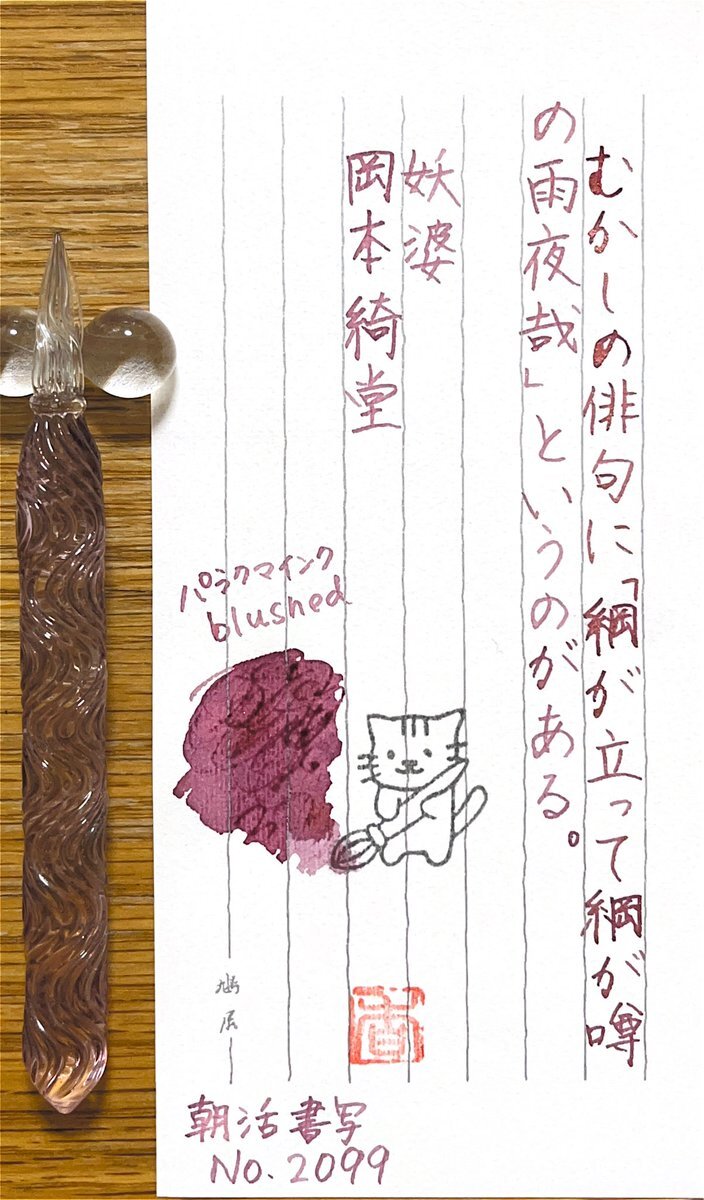 むかしの俳句に「綱が立って綱が噂
の雨夜哉」というのがある。
妖婆
岡本綺堂
パラクマインク
blushed
鳩居
朝活書写
No.2099